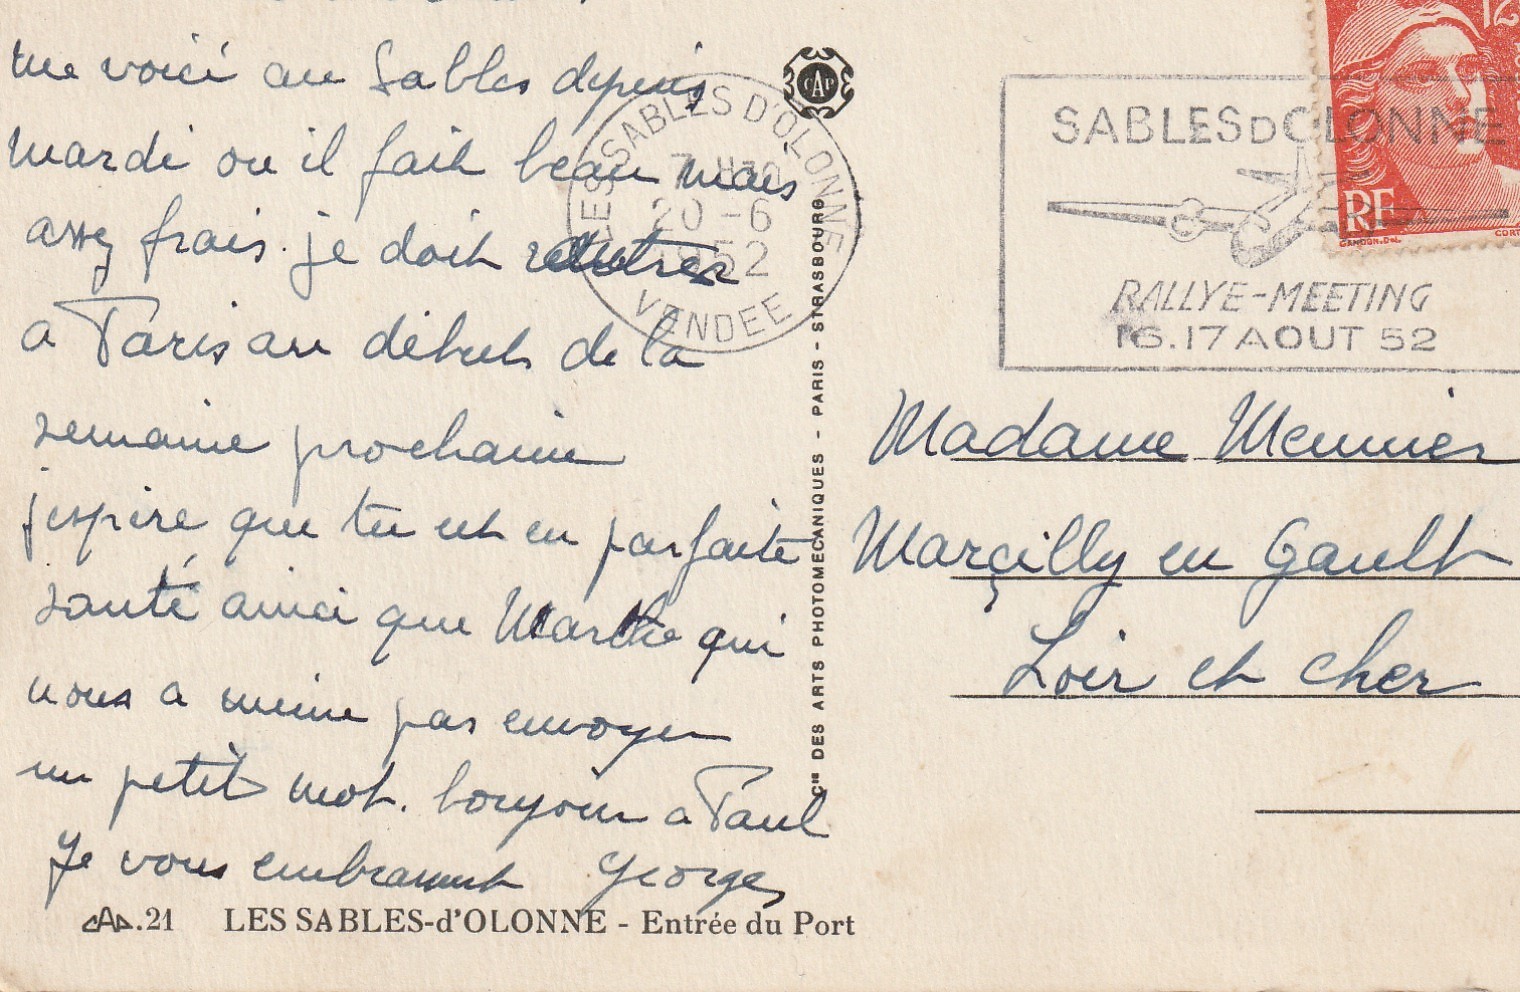 me voici au Sables depuis
mardi ou il fait beau mais
assez frais. je doit rentrer
a Paris au débuts de la
semaine prochaine
j'espère que tu est en parfaite
santé ainci que Marthe qui
nous a meme pas envoyer
un petit mot. bonjour a Paul
Je vous embrassent Georges
CAP.21 LES SABLES-d'OLONNE - Entrée du Port
CAP
LES SABLES D'OLONNE
20 - 6
1952
VENDEE
Cie DES ARTS PHOTOMECANIQUES - PARIS - STRASBOURG
SABLES D OLONNE
RALLYE-MEETING
16.17 AOUT 52
12
RF
GANDON.DEL
CORT
Madame Meunier
Marçilly en Gault
Loir et Cher